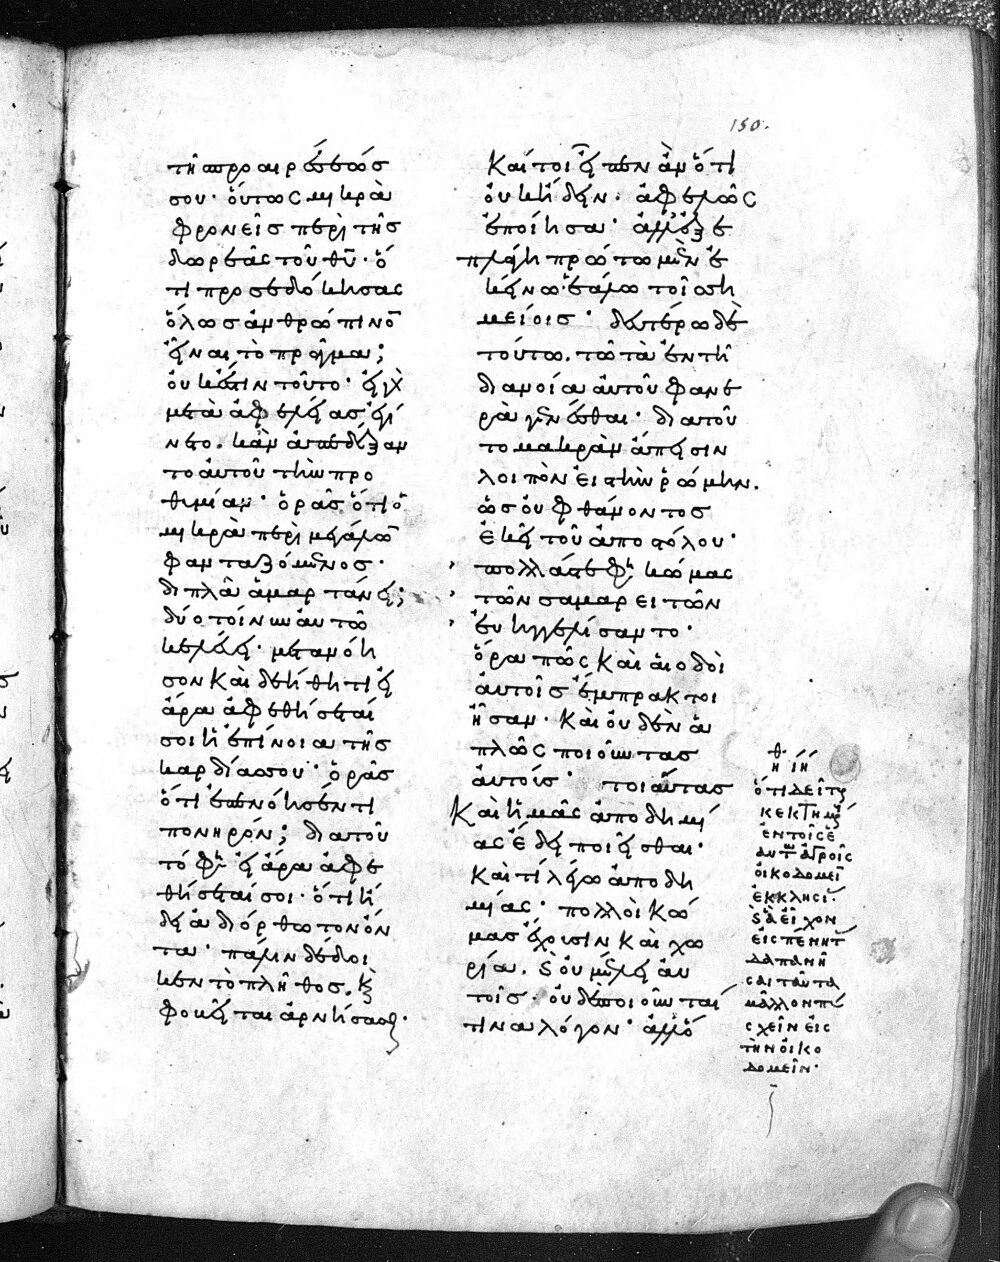 150.
τῆ προαιρέσεώς
σου· οὕτως μικρὰ
φρονεῖς περὶ τῆς
δωρεᾶς τοῦ θῦ· ὅ
τι προσεδόκησας
ὅλως ἀνθρώπινο̅
εἶναι τὸ πρᾶγμα;
οὐκ ἔστιν τοῦτο· εἰ γὰρ
μετὰ ἀφελείας ἐγί
νετο. κἂν ἀπεδέξαν
το αὐτοῦ τὴν προ
θυμίαν· ὁρᾶς ὅτι ὁ
μικρὰ περὶ μεγάλω̅
φανταζόμενος·
διπλᾶ ἁμαρτάνει;
δύο τοίνυν αὐτῶ
κελεύει· μετανόη
σον καὶ δεήθητι εἰ
ἄρα ἀφεθήσεταί
σοι ἡ ἐπίνοια τῆς
καρδίας σου· ὁρᾶς
ὅτι ἐπενόησέν τι
πονηρόν; διατοῦ
τό φη· εἰ ἄρα ἀφε
θήσεταί σοι· ὅτι ἤ
δει ἀδιόρθωτον ὄν
τα· πάλιν δέδοι
κεν τὸ πλῆθος. καὶ
φοβεῖται ἀρνήσασθαι·
Καίτοι εἶπεν ἂν ὅτι
οὐκ ἤδειν· ἀφελῶς
ἐποίησα· ἀλλ' ἐξε
πλάγη πρώτω μὲν ἐ
κείνω· ἑάλω τοῖς ση
μείοις· δευτέρω δὲ
τούτω. τῶ τὰ ἐν τῆ
διανοία αὐτοῦ φανε
ρὰ γενέσθαι· διατοῦ
το μακρὰν ἄπεισιν
λοιπὸν εἰς τὴν ῥώμην.
ὡς οὐ φθάνοντος
ἐκεῖ τοῦ ἀποστόλου·
πολλάς τε φη κώμας
τῶν σαμαρειτῶν
εὐηγγελίσαντο·
ὅρα πῶς καὶ αἱ ὁδοὶ
αὐτοῖς ἔμπρακτοι
ἦσαν· καὶ οὐδὲν ἁ
πλῶς ποιοῦντας
αὐτούς· τοιαύτας
Καὶ ἡμᾶς ἀποδημί
ας ἔδει ποιεῖσθαι·
καὶ τί λέγω ἀποδη
μίας· πολλοὶ κώ
μας ἔχουσιν καὶ χω
ρία. καὶ οὐ μέλει αὐ
τοῖς· οὐδὲ ποιοῦνταί
τινα λόγον· ἀλλ' ὅ
ὅτι δεῖ τ
κεκτημ
ἐν τοῖς ἑ
αυτ ἀγροῖς
οἰκοδομεῖ
ἐκκλησί·
καὶ ἃ εἶχον
εἰς πένητ
δαπανῆ
σαι ταῦτα
μᾶλλον
σχεῖν εἰς
τὴν οἰκο
δομεῖν·